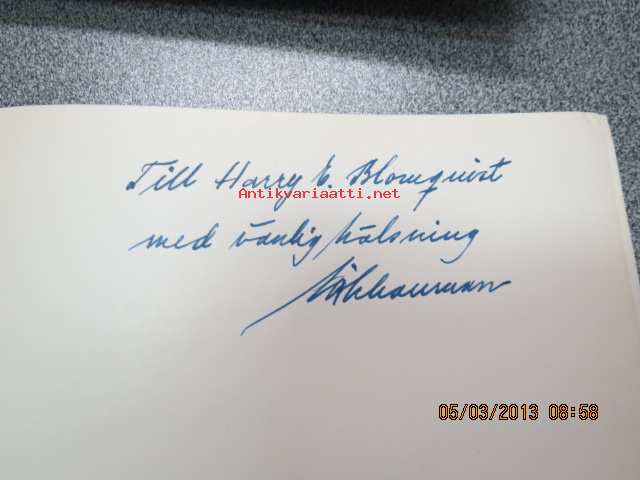 Till Harry E. Blomquist
Antikvariaatti.net
med vänlig hälsning
05/03/2013 08:58